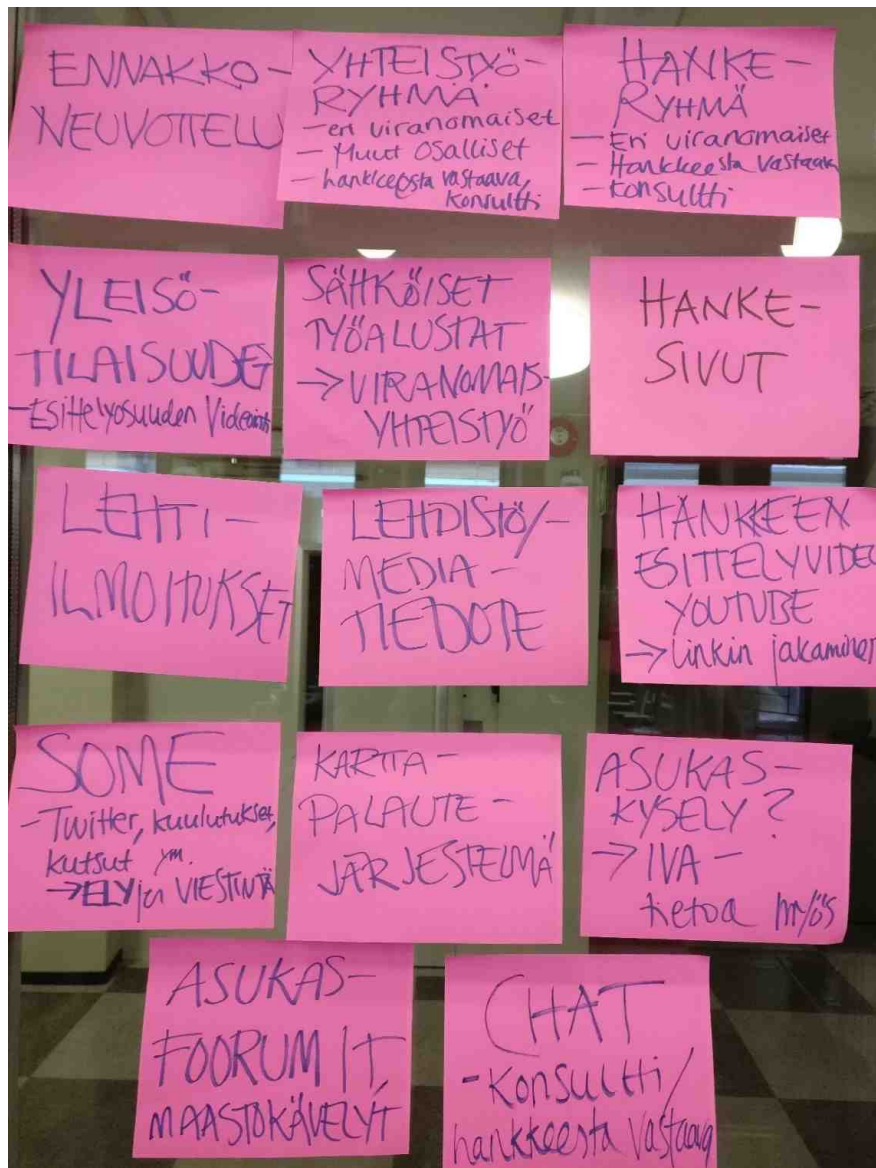 ENNAKKO-
NEUVOTTELU
YHTEISTYÖ-
RYHMÄ
- eri viranomaiset
- Muut osalliset
- hankkeesta vastaava,
konsultti
HANKE-
RYHMÄ
- Eri viranomaiset
- Hankkeesta vastaava
- konsultti
YLEISÖ-
TILAISUUDET
- Esittelyosuuden Videointi
SÄHKÖISET
TYÖALUSTAT
→ VIRANOMAIS-
YHTEISTYÖ
HANKE-
SIVUT
LEHTI-
ILMOITUKSET
LEHDISTÖ/-
MEDIA-
TIEDOTE
HANKKEEN
ESITTELYVIDEO
YOUTUBE
→ linkin jakaminen
SOME
- Twitter, kuulutukset,
kutsut ym.
→ ELYjen VIESTINTÄ
KARTTA-
PALAUTE-
JÄRJESTELMÄ
ASUKAS-
KYSELY?
→ IVA-
tietoa myös
ASUKAS-
FOORUMIT,
MAASTOKÄVELYT
CHAT
- Konsultti/
hankkeesta vastaava